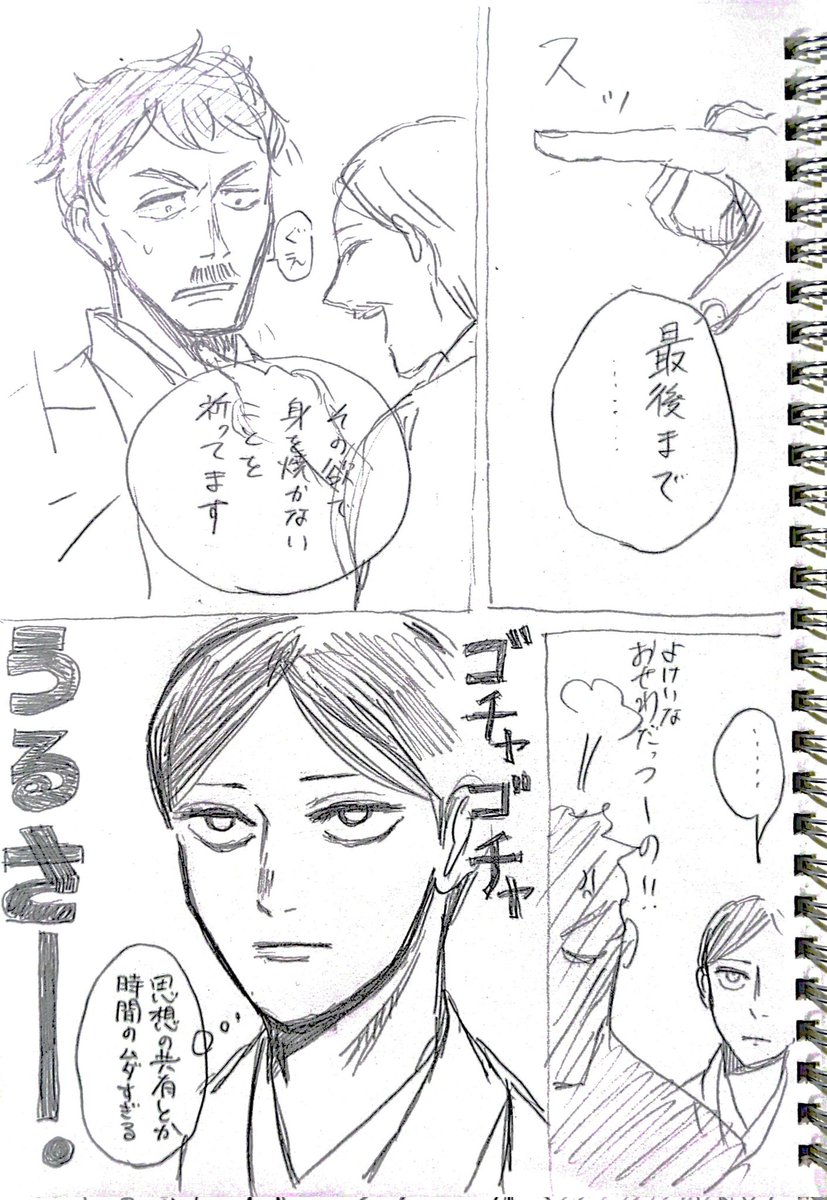 スッ
最後まで
……
ぐえ
その欲で
身を焼かない
ことを
祈ってます
……
よけいな
おせわだっつーの!!
ゴチャゴチャ
うるさー。
思想の共有とか
時間のムダすぎる